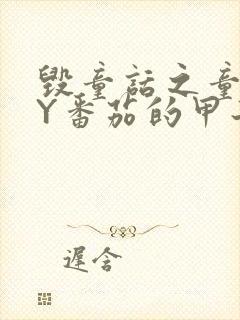 毁童话之童
Y番茄的甲
遲含